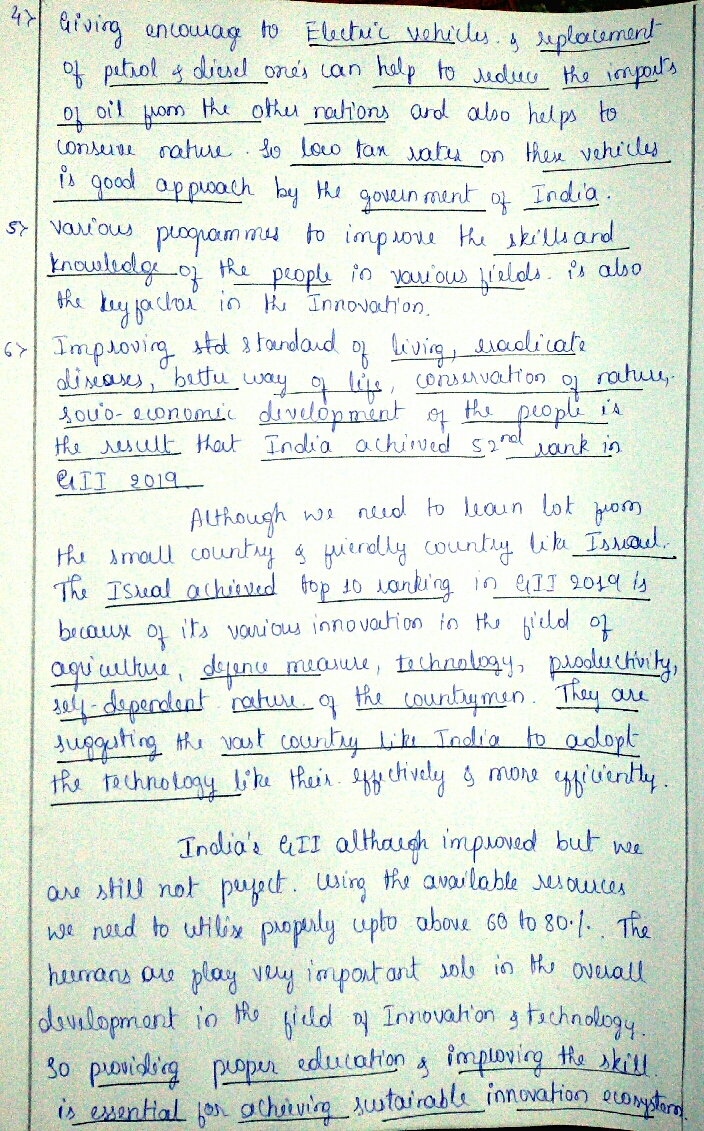 4> Giving encourage to Electric vehicles & replacement
of petrol & diesel one's can help to reduce the imports
of oil from the other nations and also helps to
conserve nature. So low tax rates on these vehicles
is good approach by the government of India.
5> Various programmes to improve the skills and
knowledge of the people in various fields. is also
the key factor in the Innovation.
6> Improving std standard of living, eradicate
diseases, better way of life, conservation of nature,
socio-economic development of the people is
the result that India achieved 52nd rank in
GII 2019
Although we need to learn lot from
the small country & friendly country like Issrael.
The ISreal achieved top 10 ranking in GII 2019 is
because of its various innovation in the field of
agriculture, defence measure, technology, productivity,
self-dependent nature of the countrymen. They are
suggesting the vast country like India to adopt
the technology like their effectively & more efficiently.
India's GII although improved but we
are still not perfect. Using the available resources
we need to utilise properly upto above 60 to 80%. The
humans are play very important role in the overall
development in the field of Innovation & technology.
So providing proper education & improving the skill
is essential for achieving sustainable innovation ecosystem.